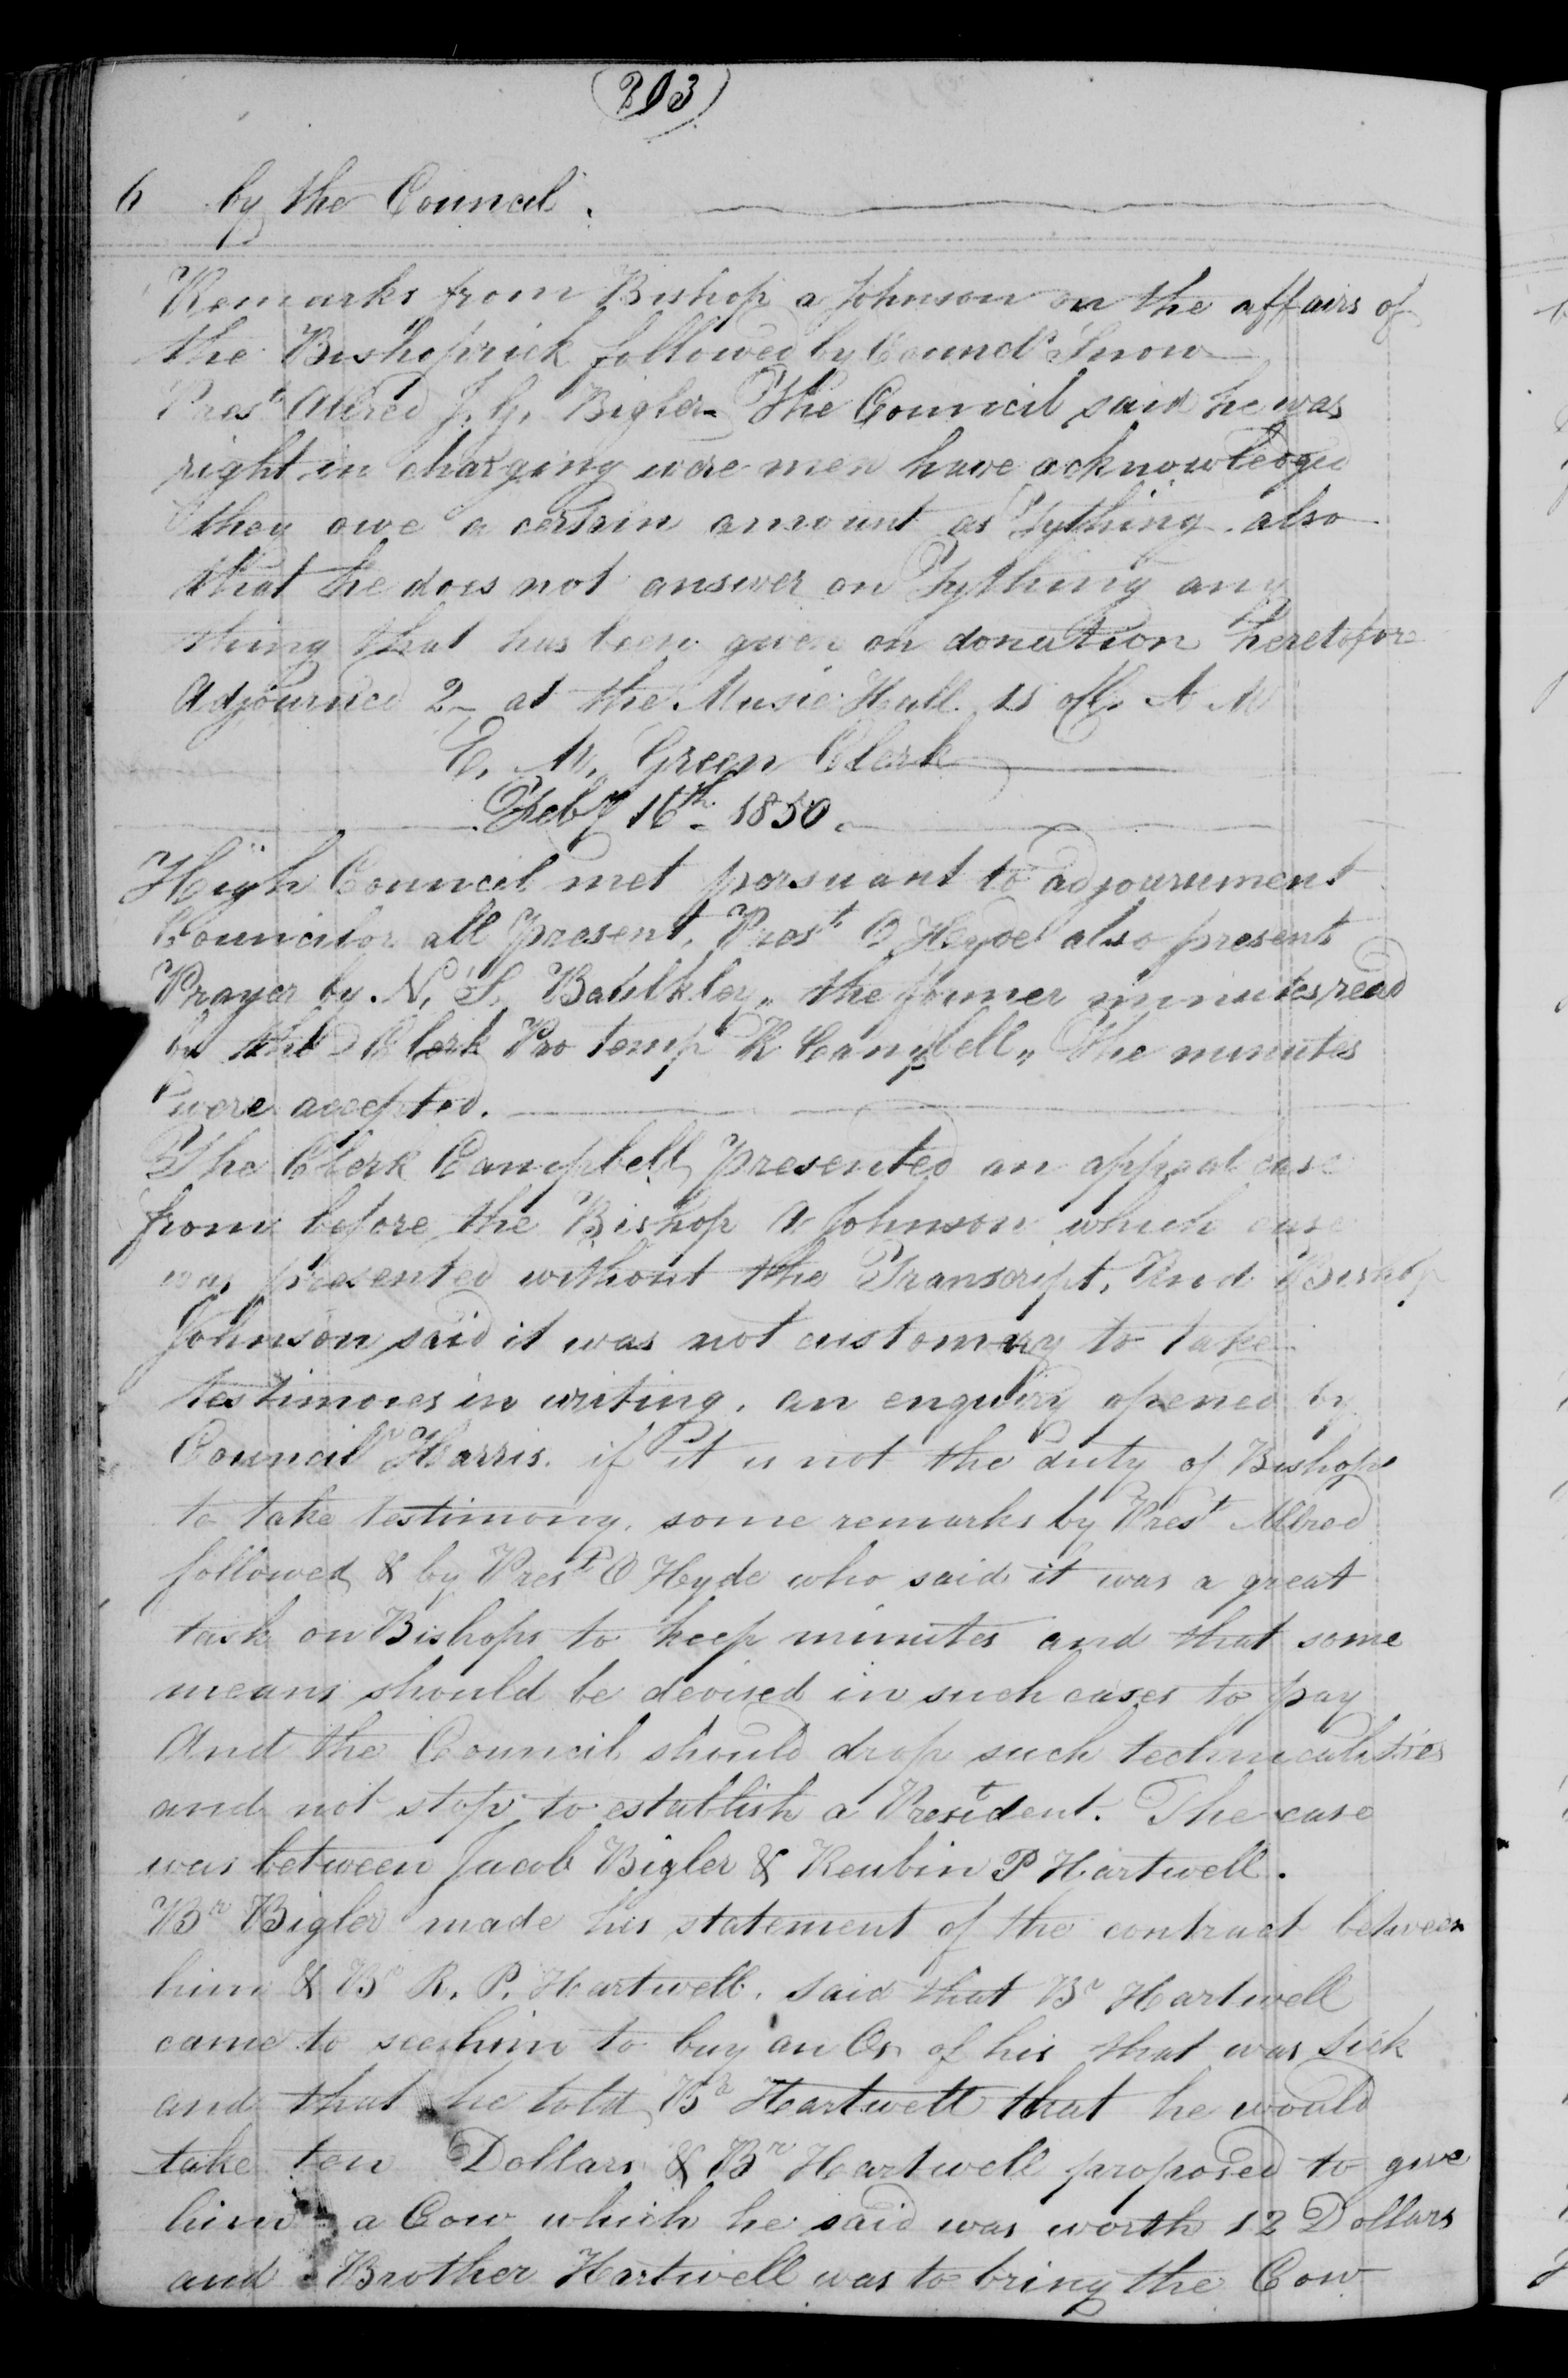 (203)
6 by the Council.
Remarks from Bishop a Johnson on the affairs of
the Bishoprick followed by Councr Snow
Prest Allred J. G. Bigler - The Council said he was
right in charging were men have acknowledged
they owe a certain amount as Tything. also
that he does not answer on Tything any
thing that has been given on donation heretofore
Adjourned 2 at the Music Hall A M
E. M. Green Clerk
Feby 16th 1850.
High Council met porsuant to adjournment
Councilor all present. Prest O Heyde also present
Prayer by N. S. Baulkley,, the former minutes read
by the Clerk Pro temp R Campbell,, The minutes
were accepted.
The Clerk Campbell presented an appeal case
from before the Bishop A Johnson which case
was presented without the Transcript. And Bishop
Johnson said it was not customary to take
testimones in writing. an enquiry opened by
Councilr Harris. if it is not the duty of Bishops
to take testimony. some remarks by Prest Allred
followed & by Prest O Heyde who said it was a great
task on Bishops to keep minutes and that some
means should be devised in such cases to pay
And the Council should drop such technicalities
and not stop to establish a President. The case
was between Jacob Bigler & Reubin P Hartwell.
Br Bigler made his statement of the contract between
him & Br R. P. Hartwell. said that Br Hartwell
came to see him to buy an Ox of his that was sick
and that he told Br Hartwell that he would
take ten Dollars & Br Hartwell proposed to give
him a Cow which he said was worth 12 Dollars
and Brother Hartwell was to bring the Cow